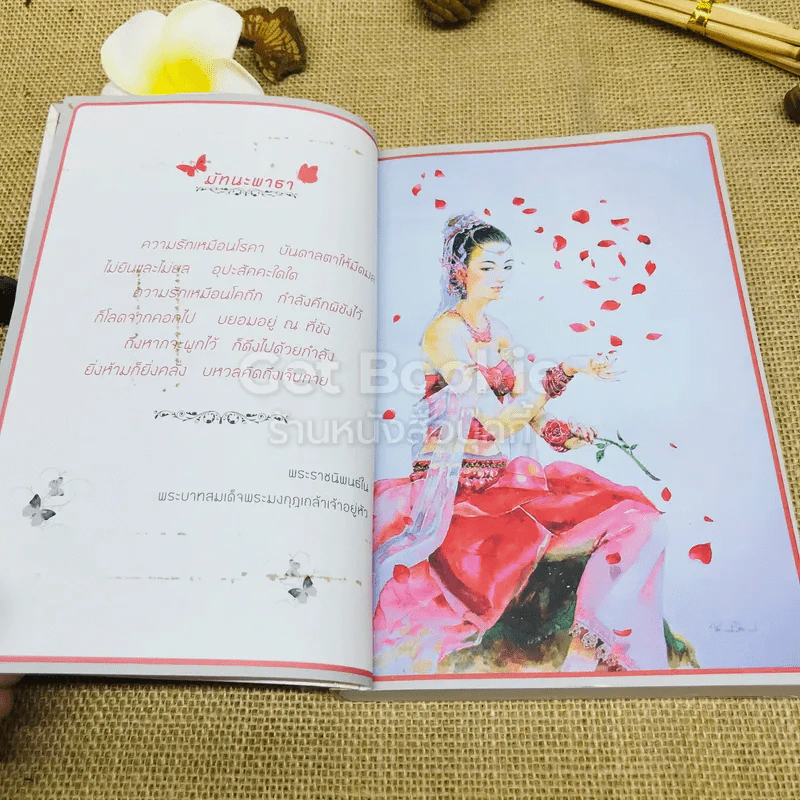 มัทนะพาธา
ความรักเหมือนโรคา บันดาลตาให้มืดมล
ไม่ยินและไม่ยล อุปะสัคคะใดใด
ความรักเหมือนโคถึก กำลังคึกผิขังไว้
ก็โลดจากคอกไป บยอมอยู่ ณ ที่ขัง
ถึงหากจะผูกไว้ ก็ดึงไปด้วยกำลัง
ยิ่งห้ามก็ยิ่งคลั่ง บหวลคิดถึงเจ็บกาย
Get Bookie
ร้านหนังสือบุ๊คกี้
พระราชนิพนธ์ใน
พระบาทสมเด็จพระมงกุฎเกล้าเจ้าอยู่หัว